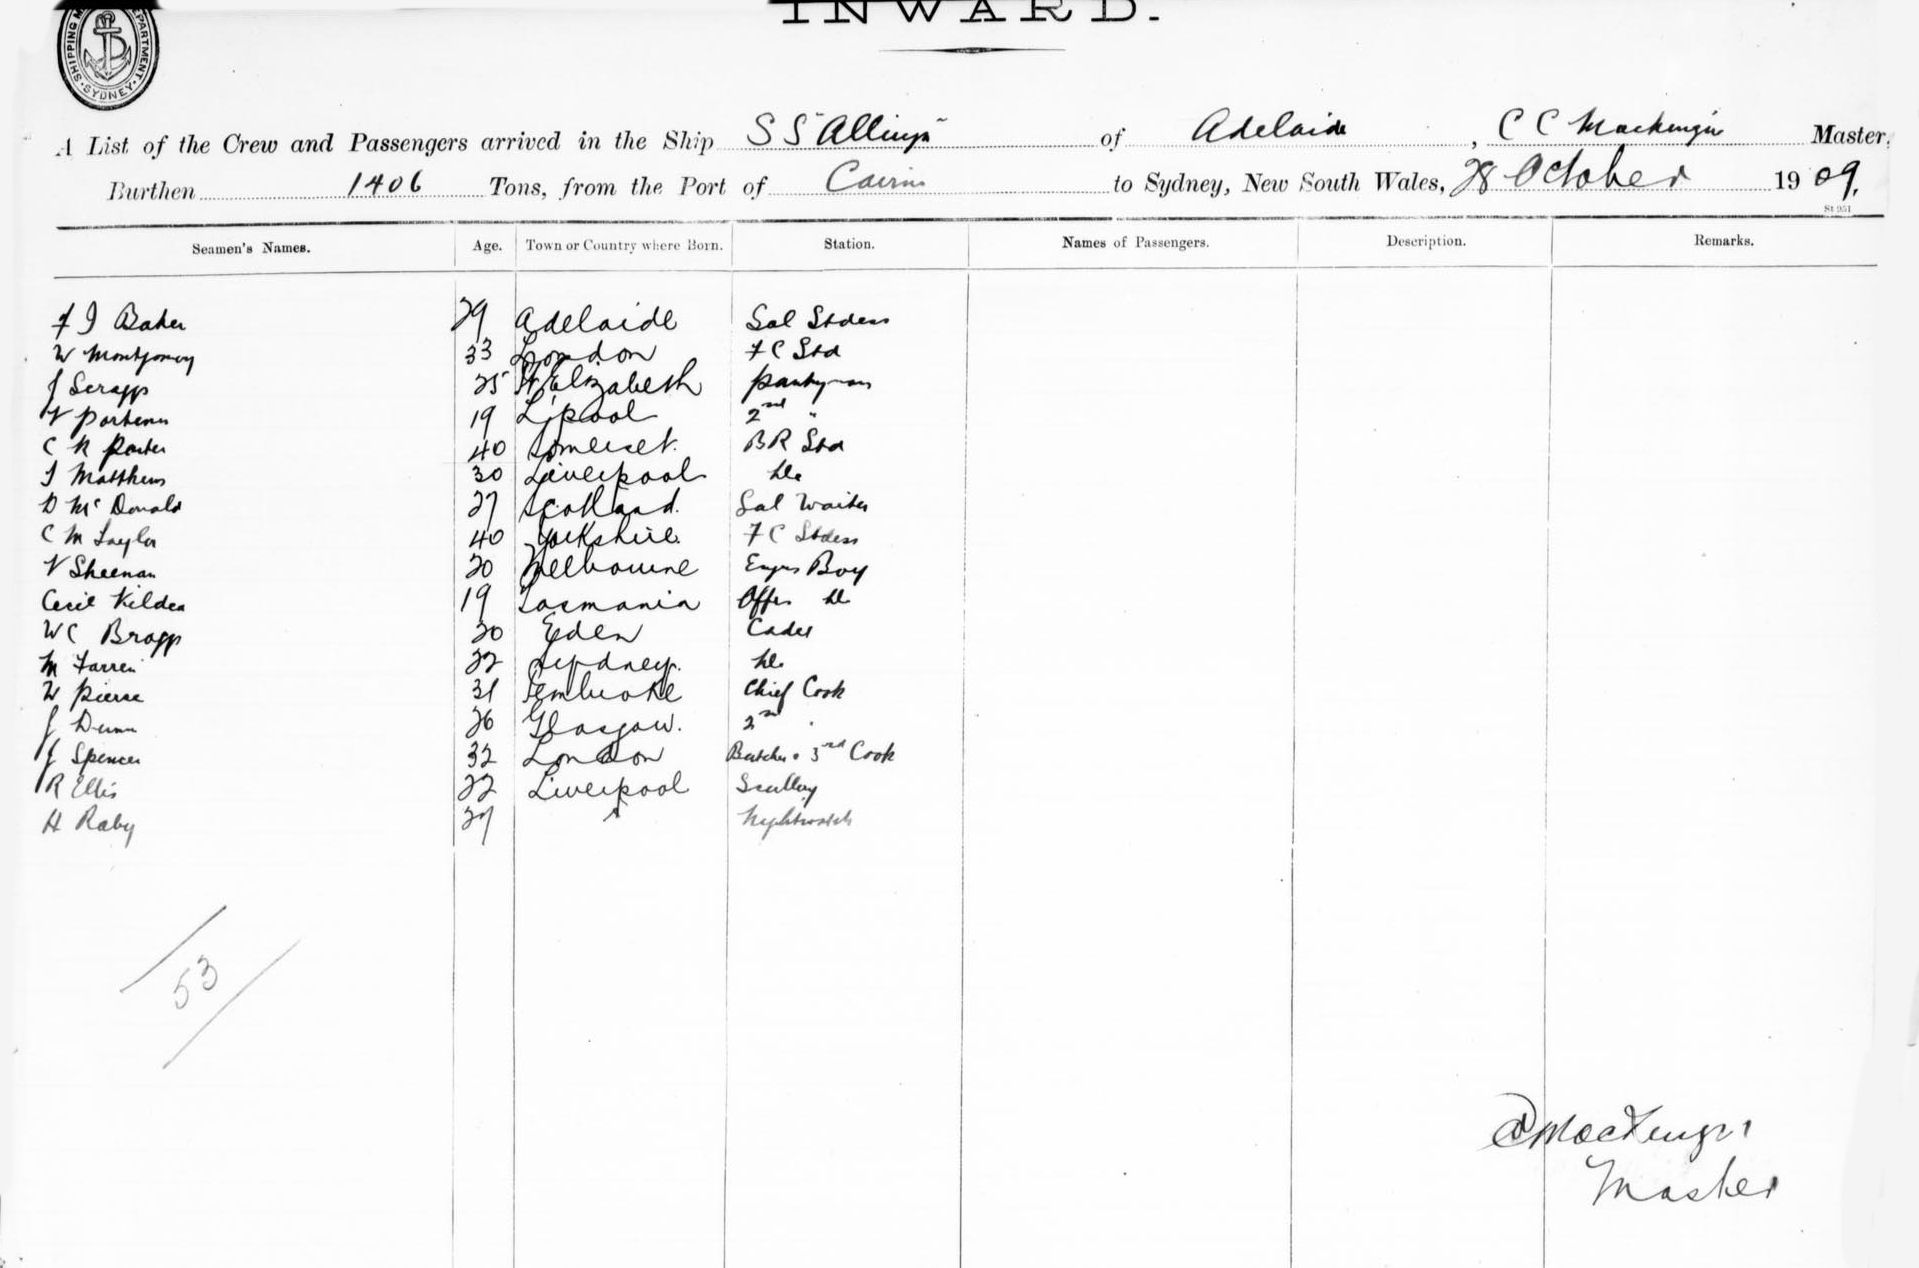 INWARD.
SHIPPING DEPARTMENT. SYDNEY
A List of the Crew and Passengers arrived in the Ship SS "Allinga" of Adelaide, C C Mackenzie Master,
Burthen 1406 Tons, from the Port of Cairns to Sydney, New South Wales, 28 October 1909.
St 951
Seamen's Names. Age. Town or Country where Born. Station. Names of Passengers. Description. Remarks.
F J Baker 29 Adelaide Sal Stdess
W Montgomery 33 London FC Std
J Scraggs 25 Pt Elizabeth Pantryman
19 L'pool 2nd "
C R Porter 40 Somerset. BR Std
J Matthews 30 Liverpool do
D McDonald 27 Scotland. Sal Waiter
C M Taylor 40 Yorkshire. FC Stdess
V Sheenan 20 Melbourne Engrs Boy
Cecil Kildea 19 Tasmania Offrs do
WC Bragg 20 Eden Cadet
M Farrein 22 Sydney. do
W Pierse 31 Pembroke Chief Cook
J Dunn 26 Glasgow. 2nd "
J Spencer 32 London Butcher & 3rd Cook
R Ellis 22 Liverpool Scullery
H Raby 27 " Nightwatch
53
CC Mackenzie
Master